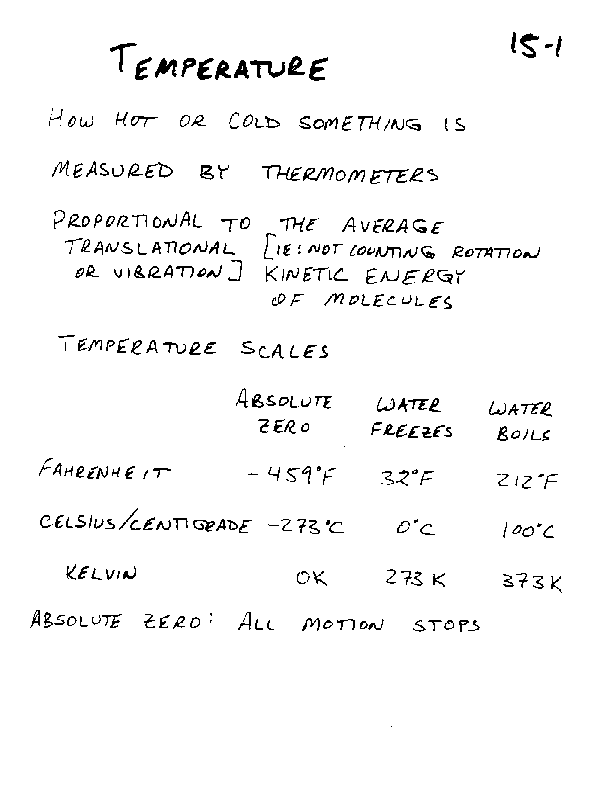 15-1
TEMPERATURE
HOW HOT OR COLD SOMETHING IS
MEASURED BY THERMOMETERS
PROPORTIONAL TO THE AVERAGE
TRANSLATIONAL [IE: NOT COUNTING ROTATION
OR VIBRATION] KINETIC ENERGY
OF MOLECULES
TEMPERATURE SCALES
ABSOLUTE WATER WATER
ZERO FREEZES BOILS
FAHRENHEIT -459°F 32°F 212°F
CELSIUS/CENTIGRADE -273°C 0°C 100°C
KELVIN 0K 273 K 373 K
ABSOLUTE ZERO: ALL MOTION STOPS